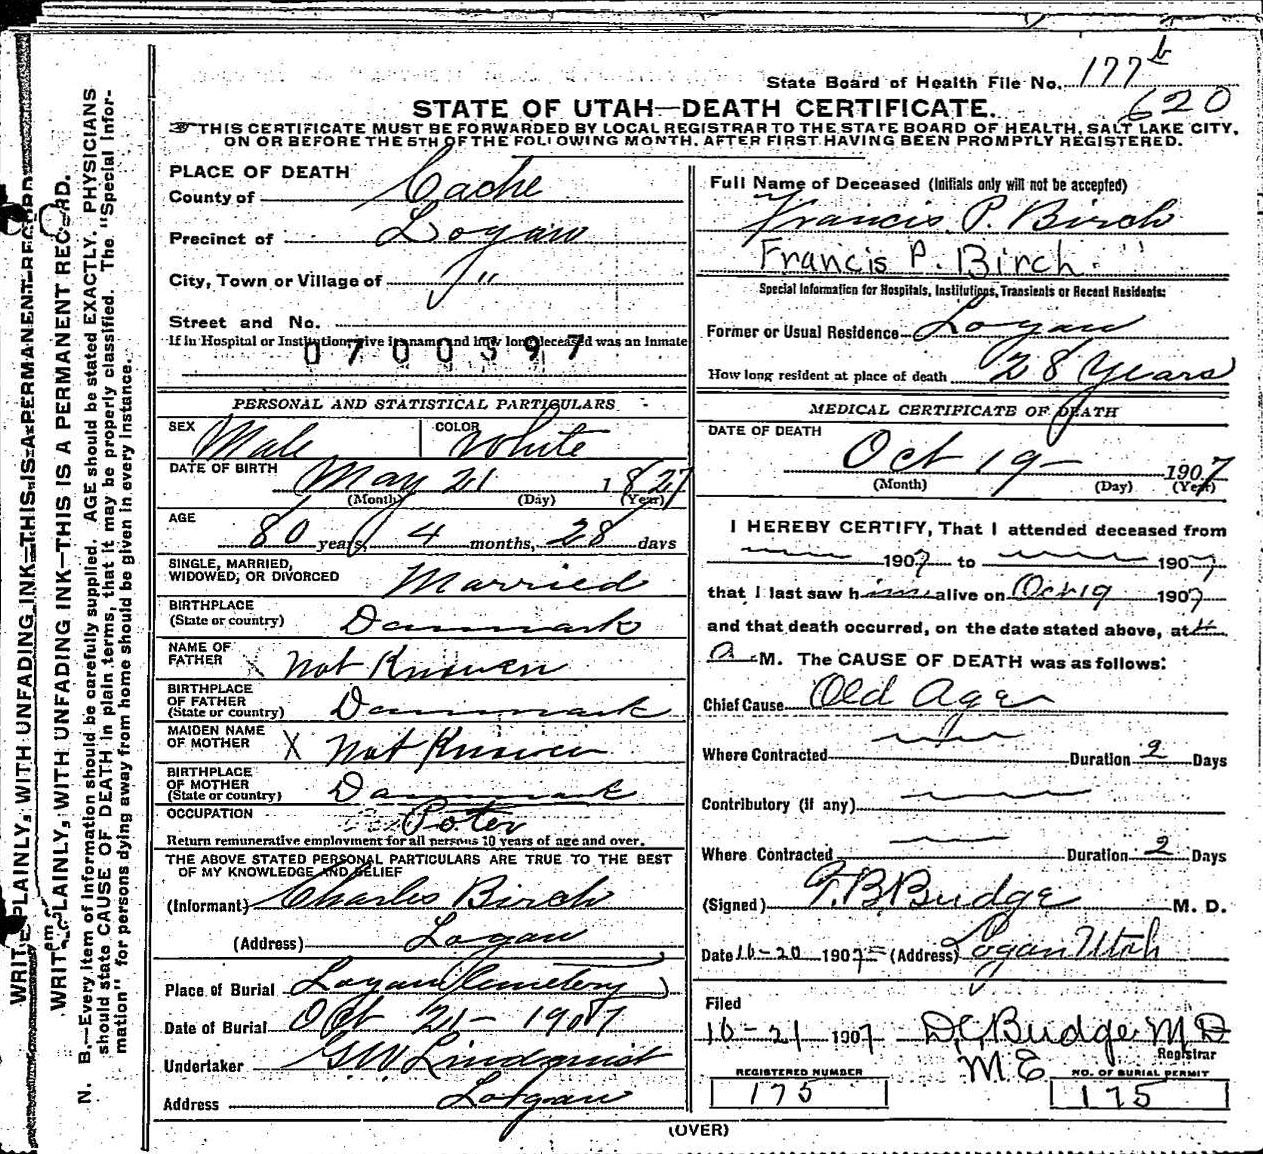 State Board of Health File No. 177
620
STATE OF UTAH—DEATH CERTIFICATE.
THIS CERTIFICATE MUST BE FORWARDED BY LOCAL REGISTRAR TO THE STATE BOARD OF HEALTH, SALT LAKE CITY,
ON OR BEFORE THE 5TH OF THE FOLLOWING MONTH, AFTER FIRST HAVING BEEN PROMPTLY REGISTERED.
PLACE OF DEATH
County of Cache
Precinct of Logan
City, Town or Village of "
Street and No.
If in Hospital or Institution give its name and how long deceased was an Inmate
0700397
PERSONAL AND STATISTICAL PARTICULARS
SEX Male COLOR White
DATE OF BIRTH May 21 1827
(Month) (Day) (Year)
AGE
80 years, 4 months, 28 days
SINGLE, MARRIED,
WIDOWED, OR DIVORCED Married
BIRTHPLACE
(State or country) Denmark
NAME OF
FATHER X Not Known
BIRTHPLACE
OF FATHER
(State or country) Denmark
MAIDEN NAME
OF MOTHER X Not Known
BIRTHPLACE
OF MOTHER
(State or country) Denmark
OCCUPATION Poter
Return remunerative employment for all persons 10 years of age and over.
THE ABOVE STATED PERSONAL PARTICULARS ARE TRUE TO THE BEST
OF MY KNOWLEDGE AND BELIEF
(Informant) Charles Birch
(Address) Logan
Place of Burial Logan Cemetery
Date of Burial Oct 21- 1907
Undertaker GW Lindquist
Address Logan
Full Name of Deceased (Initials only will not be accepted)
Francis P. Birch
Francis P. Birch.
Special Information for Hospitals, Institutions, Transients or Recent Residents:
Former or Usual Residence Logan
How long resident at place of death 28 Years
MEDICAL CERTIFICATE OF DEATH
DATE OF DEATH
Oct 19- 1907
(Month) (Day) (Year)
I HEREBY CERTIFY, That I attended deceased from
1907 to 1907
that I last saw him alive on Oct 19 1907
and that death occurred, on the date stated above, at 4
a M. The CAUSE OF DEATH was as follows:
Chief Cause Old Age
Where Contracted Duration 2 Days
Contributory (if any)
Where Contracted Duration 2 Days
(Signed) T.B. Budge M. D.
Date 10-20 1907 (Address) Logan Utah
Filed
10-21 1907 D.C. Budge MD
Registrar
M E
REGISTERED NUMBER
175
NO. OF BURIAL PERMIT
175
(OVER)
WRITE PLAINLY, WITH UNFADING INK—THIS IS A PERMANENT RECORD
WRITE PLAINLY, WITH UNFADING INK—THIS IS A PERMANENT RECORD.
N. B.—Every item of information should be carefully supplied. AGE should be stated EXACTLY. PHYSICIANS
should state CAUSE OF DEATH in plain terms, that it may be properly classified. The "Special Infor-
mation" for persons dying away from home should be given in every instance.